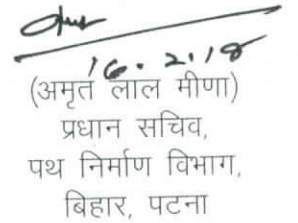 16.2.18
(अमृत लाल मीणा)
प्रधान सचिव,
पथ निर्माण विभाग,
बिहार, पटना